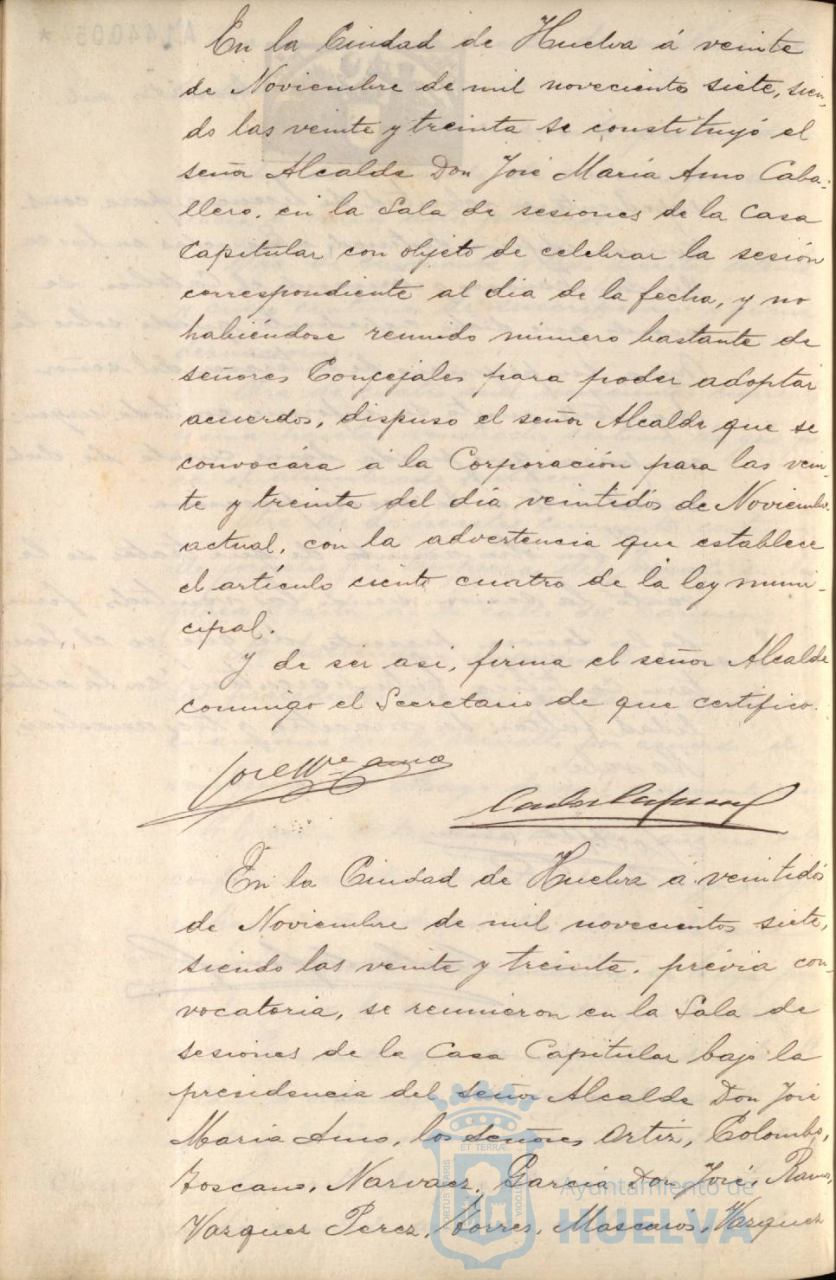 En la Ciudad de Huelva á veinte
de Noviembre de mil novecientos siete, sien-
do las veinte y treinta se constituyó el
señor Alcalde Don José María Amo Caba-
llero, en la Sala de sesiones de la Casa
Capitular con objeto de celebrar la sesión
correspondiente al dia de la fecha, y no
habiéndose reunido número bastante de
señores Concejales para poder adoptar
acuerdos, dispuso el señor Alcalde que se
convocára á la Corporación para las vein-
te y treinta del día veintidós de Noviembre
actual, con la advertencia que establece
el artículo ciento cuatro de la ley muni-
cipal.
Y de ser asi, firma el señor Alcalde
conmigo el Secretario de que certifico.
José Mª Amo
En la Ciudad de Huelva á veintidós
de Noviembre de mil novecientos siete,
siendo las veinte y treinta, prévia con-
vocatoria, se reunieron en la Sala de
sesiones de la Casa Capitular bajo la
presidencia del señor Alcalde Don José
Maria Amo, los señores Ortiz, Colombo,
Toscano, Narvaez, Garcia Don José, Ramos,
Vazquez Perez, Torres, Mascaros, Vazquez
Ayuntamiento de
HUELVA